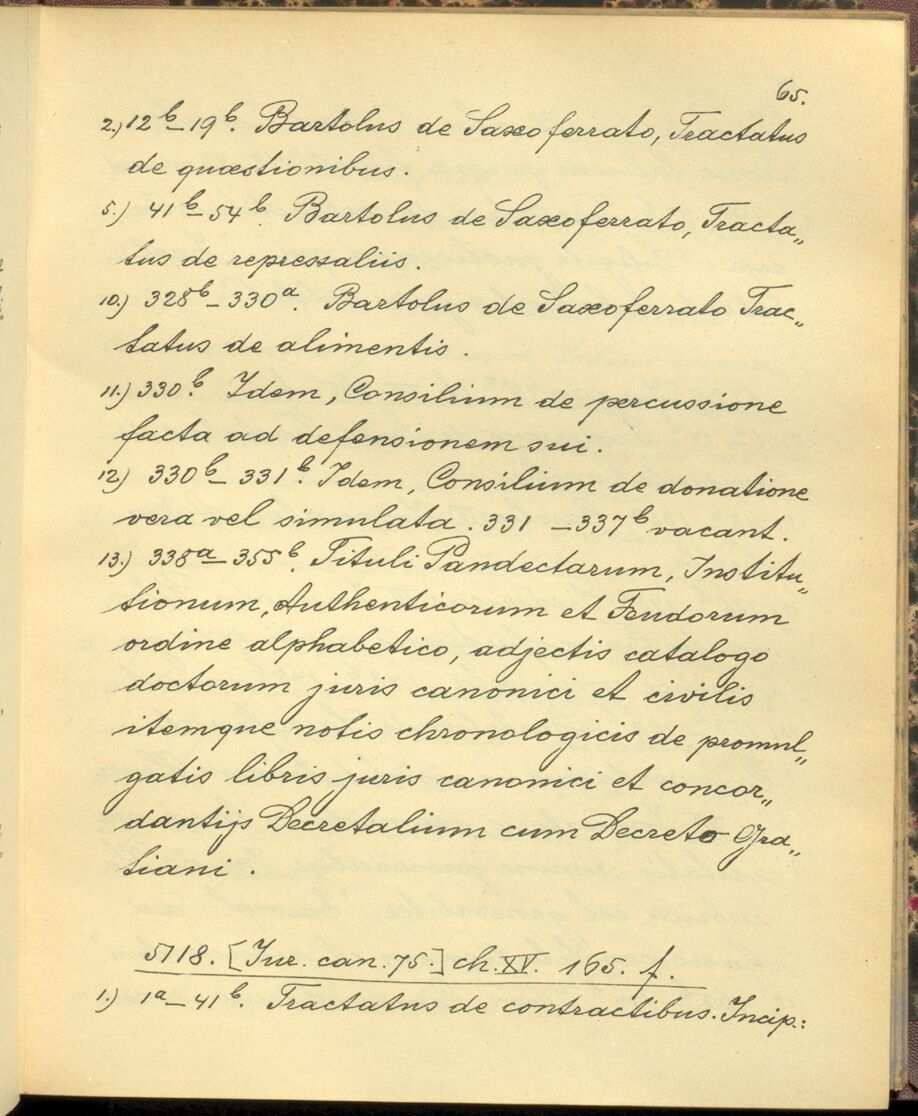 65.
2.) 12b–19b. Bartolus de Saxoferrato, Tractatus
de quæstionibus.
5.) 41b–54b. Bartolus de Saxoferrato, Tracta„
tus de repressaliis.
10.) 328b–330a. Bartolus de Saxoferrato Trac„
tatus de alimentis.
11.) 330b. Idem, Consilium de percussione
facta ad defensionem sui.
12.) 330b–331b. Idem, Consilium de donatione
vera vel simulata. 331 –337b vacant.
13.) 338a–355b. Tituli Pandectarum, Institu„
tionum, Authenticorum et Feudorum
ordine alphabetico, adjectis catalogo
doctorum juris canonici et civilis
itemque notis chronologicis de promul„
gatis libris juris canonici et concor„
dantijs Decretalium cum Decreto Gra„
tiani.
5718. [Jur. can. 75.] ch. XV. 165. f.
1.) 1a–41b. Tractatus de contractibus. Incip.: